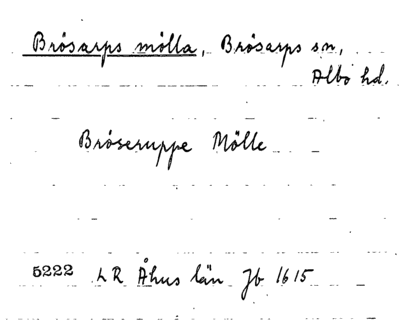 Brösarps mölla, Brösarps sn,
Albo hd.
Bröseruppe Mölle
5222 LR Åhus län Jb 1615